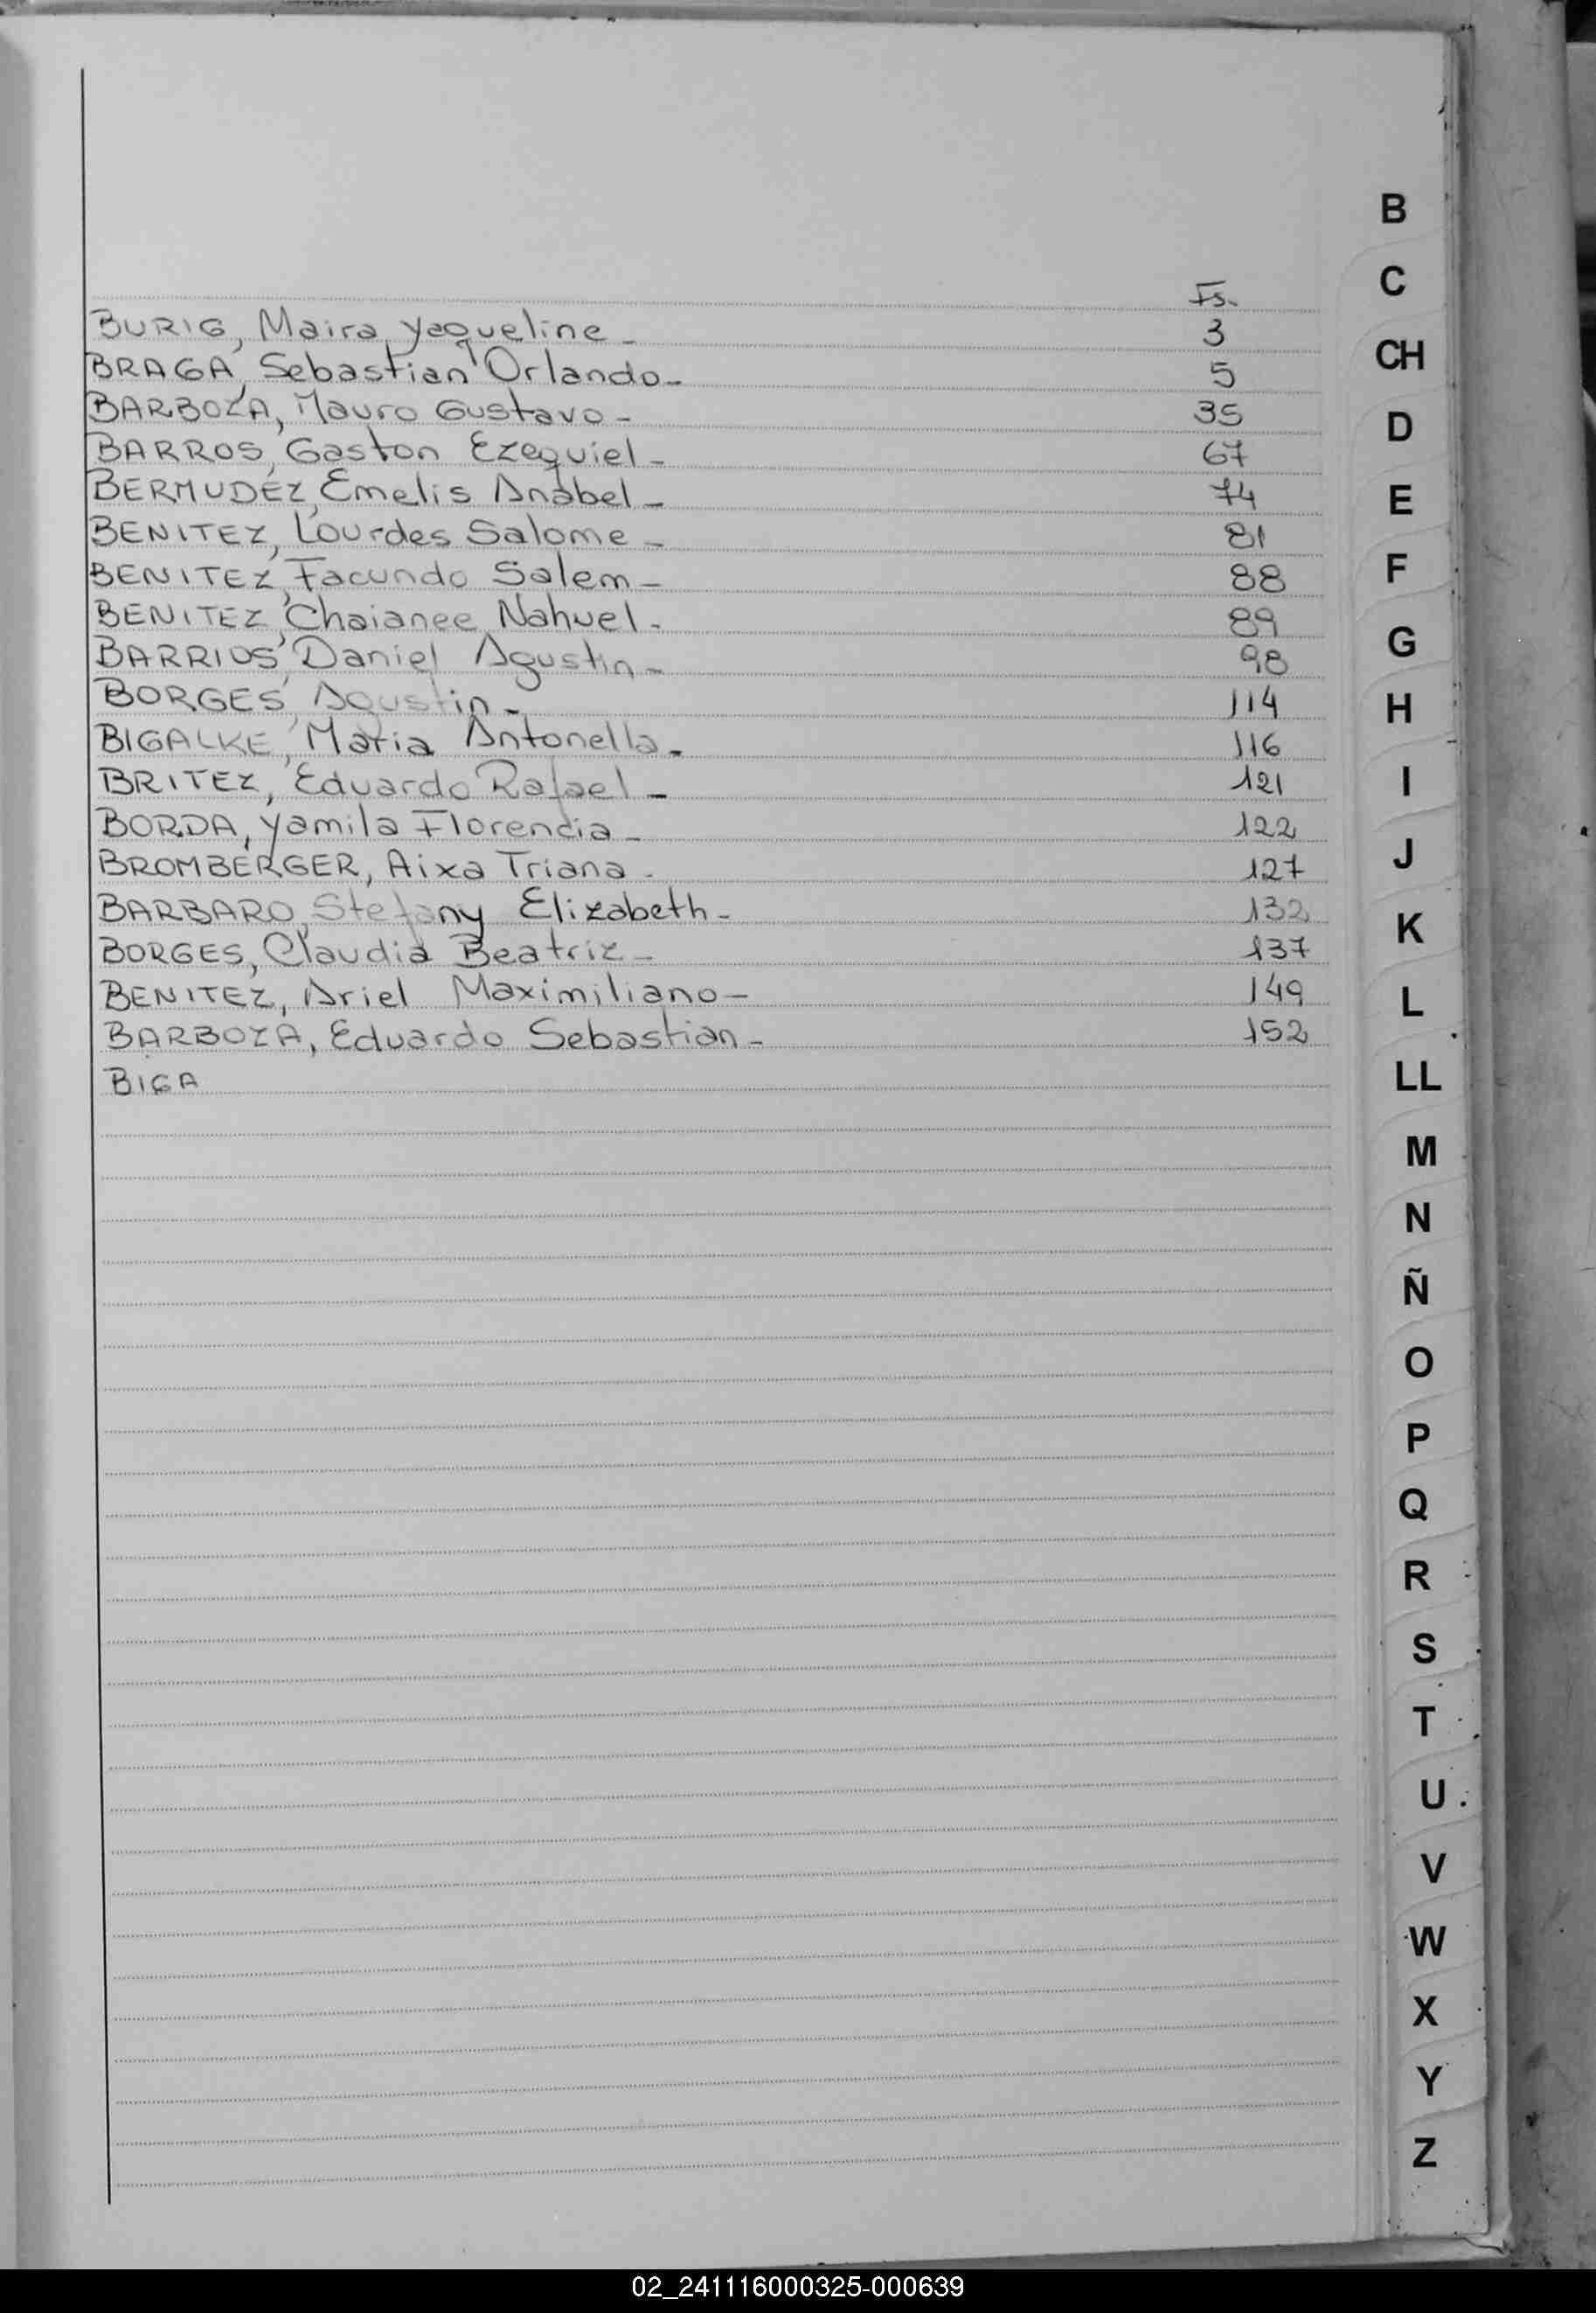 Fs.
BURIG, Maira Yaqueline - 3
BRAGA, Sebastian Orlando - 5
BARBOZA, Mauro Gustavo - 35
BARROS, Gaston Ezequiel - 67
BERMUDEZ, Emelis Anabel - 74
BENITEZ, Lourdes Salome - 81
BENITEZ, Facundo Salem - 88
BENITEZ, Chaianee Nahuel - 89
BARRIOS, Daniel Agustin - 98
BORGES, Agustin - 114
BIGALKE, Maria Antonella - 116
BRITEZ, Eduardo Rafael - 121
BORDA, Yamila Florencia - 122
BROMBERGER, Aixa Triana - 127
BARBARO, Stefany Elizabeth - 132
BORGES, Claudia Beatriz - 137
BENITEZ, Ariel Maximiliano - 149
BARBOZA, Eduardo Sebastian - 152
BIGA
B
C
CH
D
E
F
G
H
I
J
K
L
LL
M
N
Ñ
O
P
Q
R
S
T
U
V
W
X
Y
Z
02_241116000325-000639